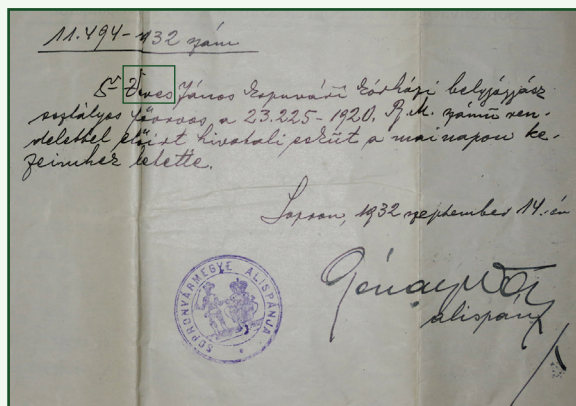 11.494-932 szám
Dr Üveges János kapuvári kórházi belgyógyász
osztályos főorvos, a 23.225-1920. B.M. számú ren-
delettel előirt hivatali esküt a mai napon ke-
zeimhez letette.
Sopron, 1932 szeptember 14.-én
alispán
SOPRONVÁRMEGYE ALISPÁNJA